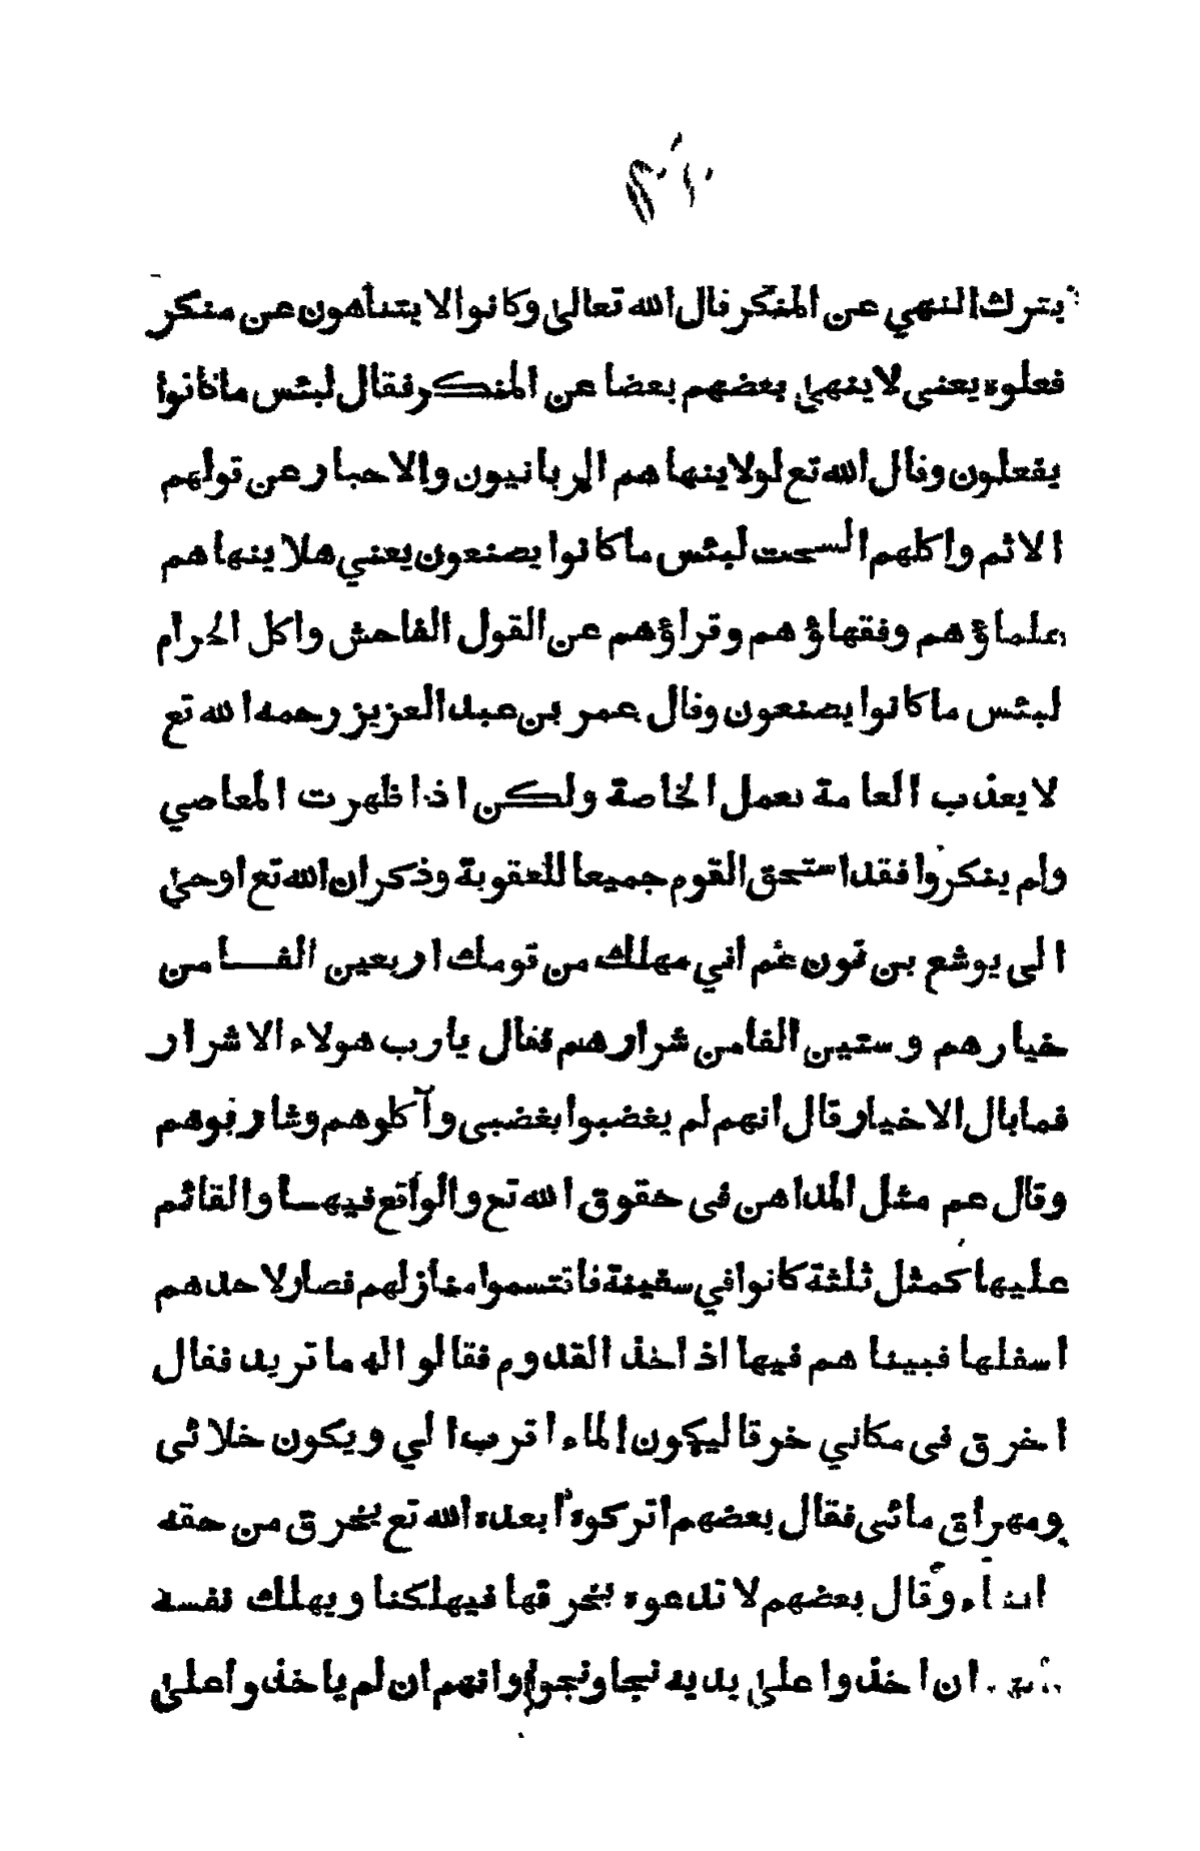 بترك النهي عن المنكر قال الله تعالى وكانوا لا يتناهون عن منكر
فعلوه يعنى لا ينهى بعضهم بعضا عن المنكر فقال لبئس ما كانوا
يفعلون وقال الله تع لولا ينهاهم الربانيون والاحبار عن قولهم
الاثم واكلهم السحت لبئس ما كانوا يصنعون يعني هلا ينهاهم
علماؤهم وفقهاؤهم وقراؤهم عن القول الفاحش واكل الحرام
لبئس ما كانوا يصنعون وقال عمر بن عبد العزيز رحمه الله تع
لا يعذب العامة بعمل الخاصة ولكن اذا ظهرت المعاصي
ولم ينكروا فقد استحق القوم جميعا للعقوبة وذكر ان الله تع اوحى
الى يوشع بن نون عم اني مهلك من قومك اربعين الفا من
خيارهم وستين الفا من شرارهم فقال يا رب هولاء الاشرار
فما بال الاخيار قال انهم لم يغضبوا بغضبى وآكلوهم وشاربوهم
وقال عم مثل المداهن فى حقوق الله تع والواقع فيها والقائم
عليها كمثل ثلثة كانوا في سفينة فاقتسموا منازلهم فصار لاحدهم
اسفلها فبينا هم فيها اذ اخذ القدوم فقالوا له ما تريد فقال
اخرق فى مكاني خرقا ليكون الماء اقرب الي ويكون خلائى
ومهراق مائى فقال بعضهم اتركوه ابعده الله تع يخرق من حقه
ما شاء وقال بعضهم لا تدعوه يخرقها فيهلكنا ويهلك نفسه
ان اخذوا على يديه نجا ونجوا وانهم ان لم ياخذوا على